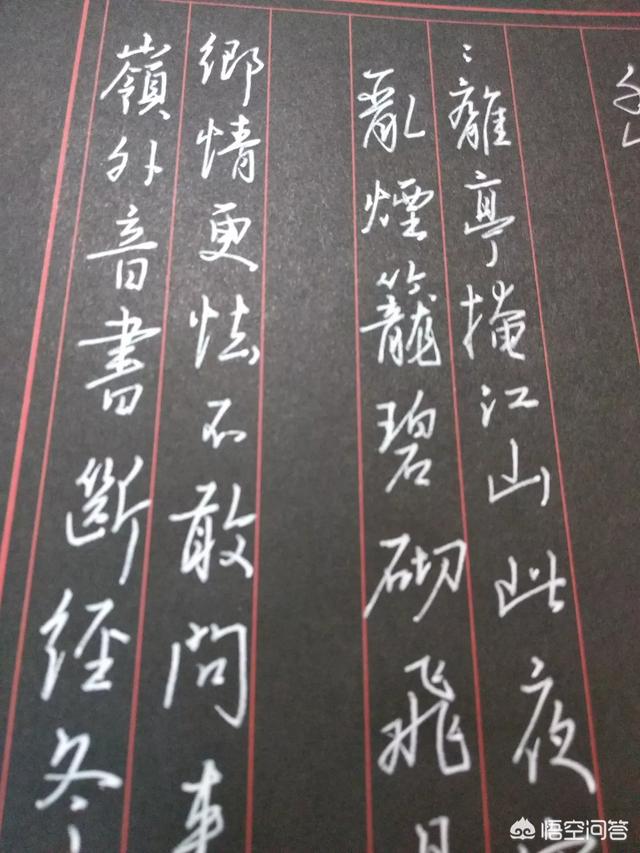 嶺外音書斷經冬
鄉情更怯不敢問
亂煙籠碧砌飛月
〻離亭掩江山此夜
悟空问答